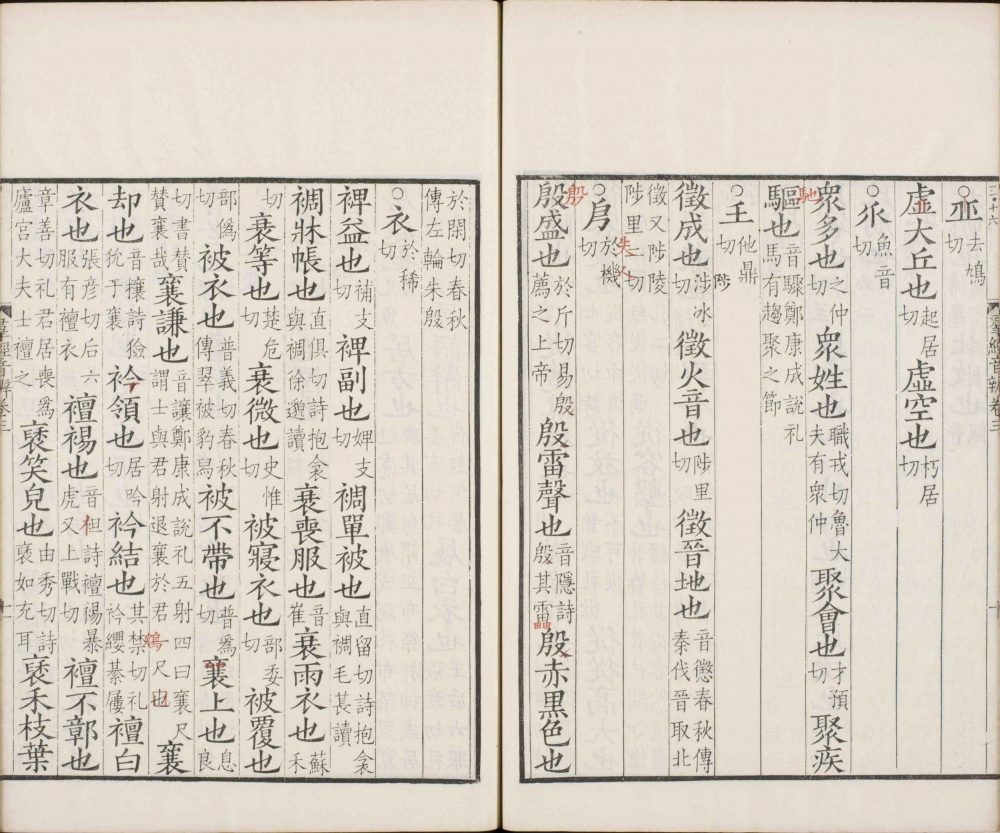 丠去鳩切
虛大丘也起居切虛空也朽居切
㐺魚音切
眾多也之仲切眾姓也職戎切魯大夫有眾仲聚會也才預切聚疾
驅也音驟鄭康成說礼馬有趨聚之節
𡈼他鼎切
徵成也陟冰切徵火音也陟里切徵晉地也音懲春秋傳秦伐晉取北
徵又陟陵陟里二切
㐆於機切
殷盛也於斤切易殷薦之上帝殷雷聲也音隱詩殷其雷殷赤黑色也
於閑切春秋傳左輪朱殷
衣於稀切
裨益也補支切裨副也婢支切裯單被也直留切詩抱衾與裯毛萇讀
裯牀帳也直俱切詩抱衾與裯徐邈讀衰喪服也音崔衰雨衣也蘇禾
切衰等也楚危切衰微也史惟切被寢衣也部委切被覆也
部偽切被衣也普義切春秋傳翠被豹舄被不帶也普為切襄上也息良
切書賛賛襄哉襄謙也音讓鄭康成說礼五射四曰襄尺謂士與君射退襄於君一尺也襄
却也音攘詩獫狁于襄衿領也居吟切衿結也其禁切礼衿纓綦屨襢白
衣也張彥切后六服有襢衣襢裼也音袒詩襢裼暴虎又上戰切襢不鄣也
章善切礼君居喪為廬宮大夫士襢之褎笑皃也由秀切詩褎如充耳褎禾枝葉
羣經音辨卷三